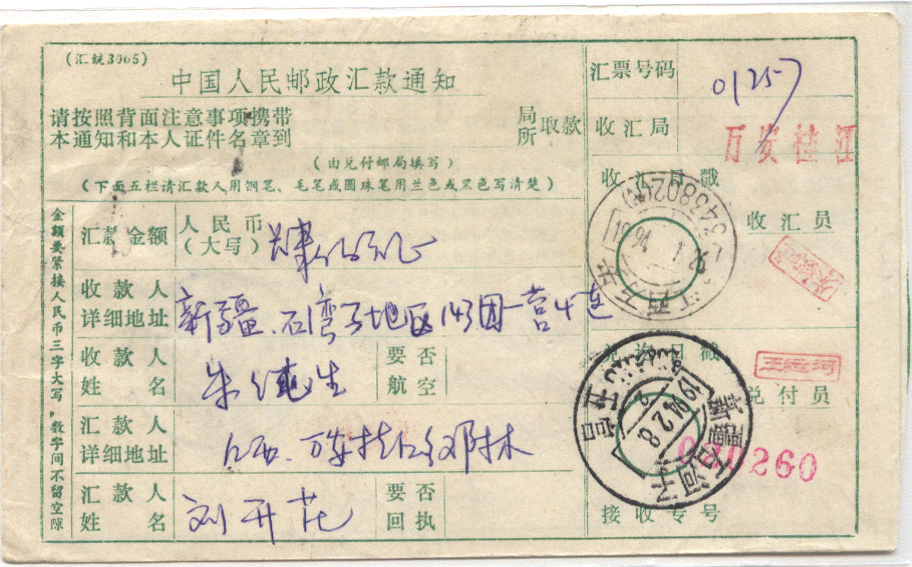 (汇统3005)
中国人民邮政汇款通知
请按照背面注意事项携带
本通知和本人证件名章到
局
所
取款
(由兑付邮局填写)
(下面五栏请汇款人用钢笔、毛笔或圆珠笔用兰色或黑色写清楚)
金额要紧接人民币三字大写,数字间不留空隙
汇款金额
人民币
(大写)
收款人
详细地址
新疆.石河子地区143团一营4连
收款人
姓名
朱纯生
要否
航空
汇款人
详细地址
江西
汇款人
姓名
刘开花
要否
回执
汇票号码
01257
收汇局
万安桂江
收汇日戳
343802
1994
收汇员
兑汇日戳
新疆石河子
1994.2.8
王运河
兑付员
080260
接收专号